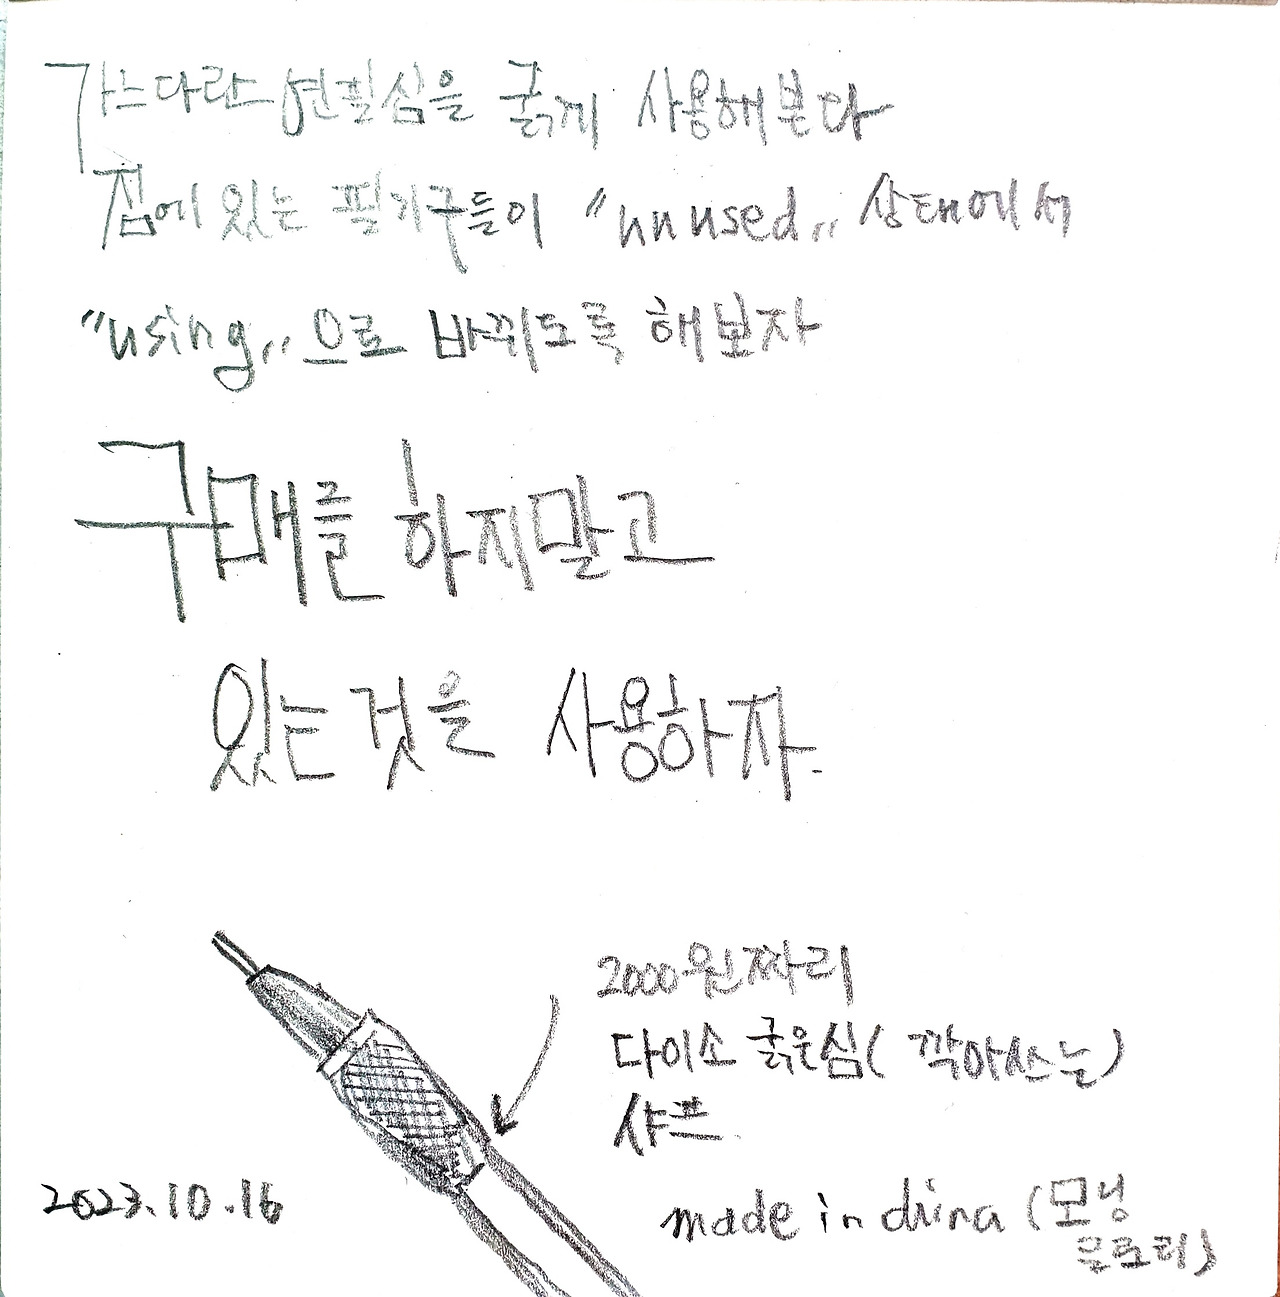 가느다란 연필심을 굵게 사용해본다
집에 있는 필기구들이 "unused" 상태에서
"using" 으로 바뀌도록 해보자
구매를 하지말고
있는것을 사용하자.
2000원짜리
다이소 굵은심( 깍아쓰는)
샤프
2023.10.16
made in china (모닝
글로리)